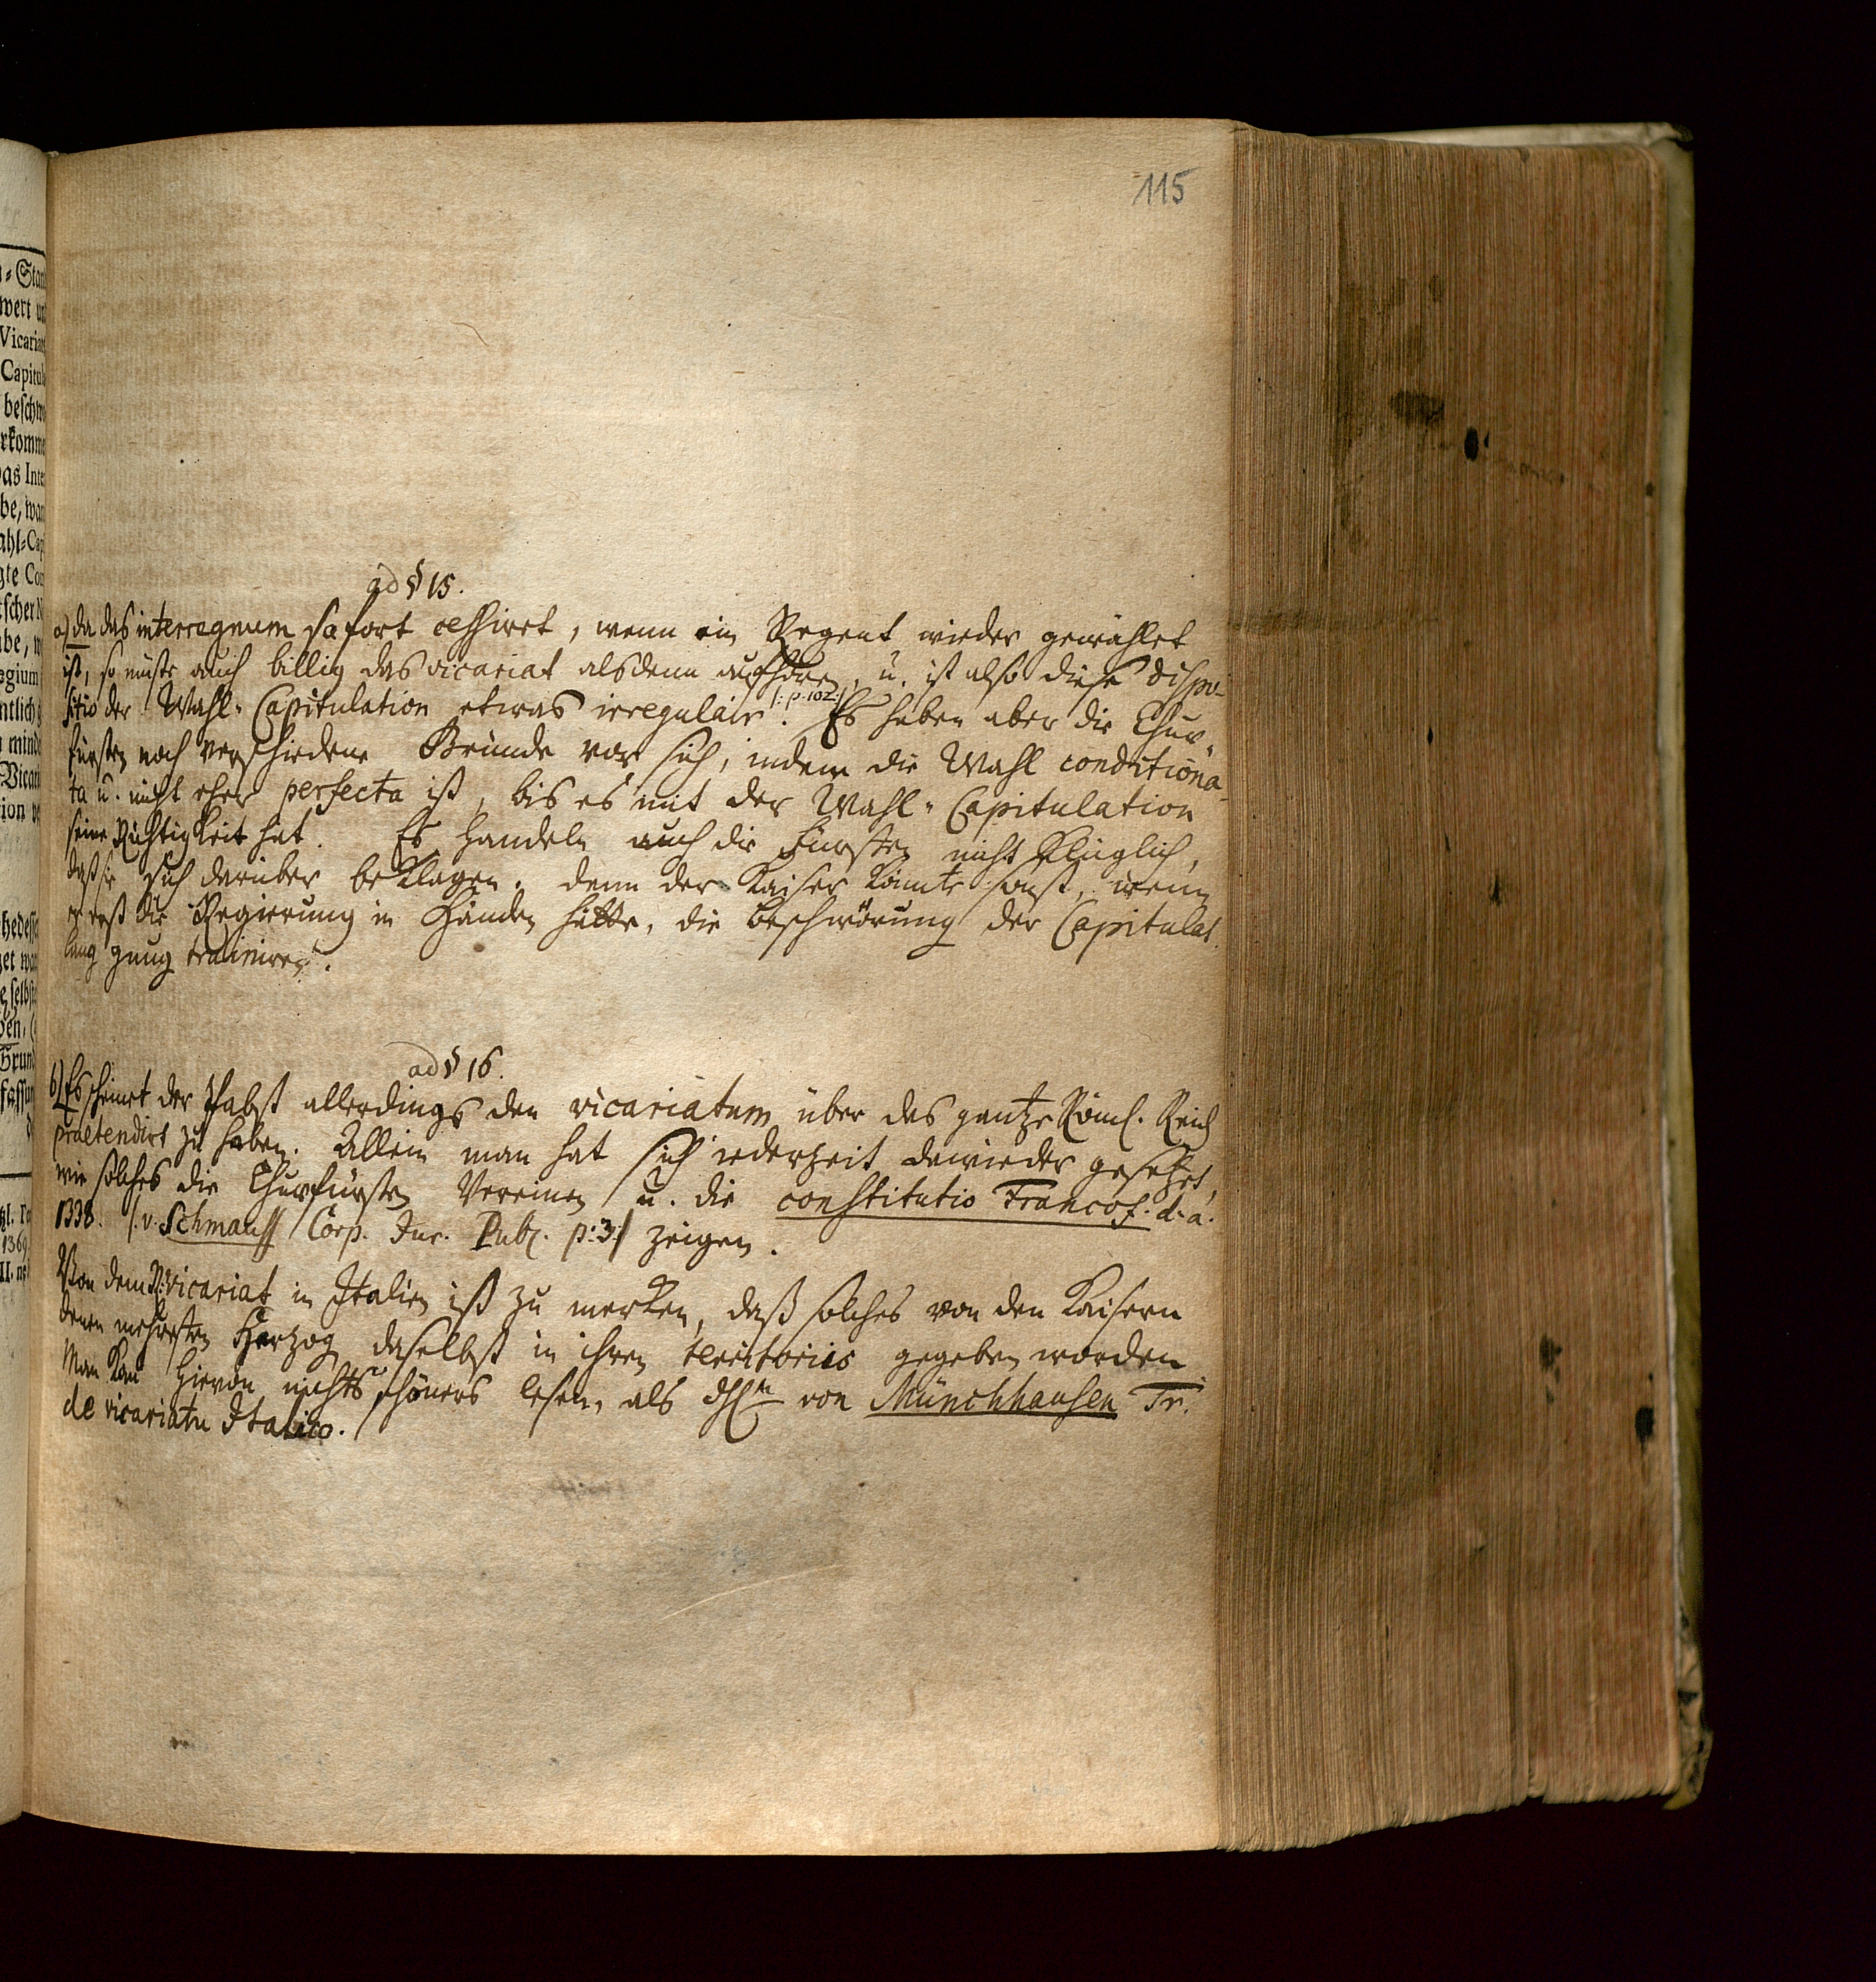 115
ad § 15.
a) da das interregnum sofort cessiret, wenn ein Regent wieder gewählet
ist, so müste auch billig das vicariat alsdenn aufhören, u. ist also diese dispo-
sitio der Wahl-Capitulation etwas irregulair /: p. 102 :/. Es haben aber die Chur-
fürsten noch verschiedene Gründe vor sich, indem die Wahl conditiona-
ta u. nicht eher perfecta ist, bis es mit der Wahl-Capitulation
seine Richtigkeit hat. Es handeln auch die Fürsten nicht klüglich,
daß sie sich darüber beklagen. denn der Kaiser könnte sonst, wenn
er erst die Regierung in Händen hätte, die Beschwörung der Capitulat.
lang gnug trainiren.
ad § 16.
b) Es scheinet der Pabst allerdings den vicariatum über das gantze Röml. Reich
praetendirt zu haben. Allein man hat sich iederzeit dawieder gesetzet,
wie solches die Churfürsten Vereinen u. die constitutio Francof. d. a.
1338. /: v. Schmauss Corp. Jur. Publ. p: 3 :/ zeigen.
Von dem vicariat in Italien ist zu merken, daß solches von den Kaisern
denen mehresten Hertzog daselbst in ihren territoriis gegeben worden
Man kan hievon nichts schöners lesen, als von Münchhausen Tr.
de vicariatu Italico.